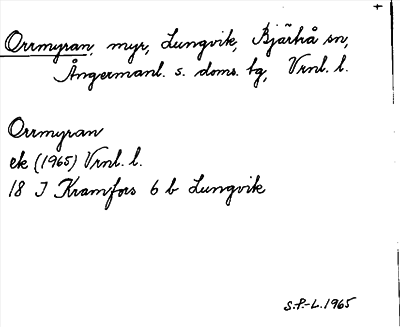 Orrmyran, myr, Lungvik, Bjärtrå sn,
Ångermanl. s. doms. tg, Vrnl. l.
Orrmyran
ek (1965) Vrnl. l.
18 J Kramfors 6 b Lungvik
S.P.-L. 1965